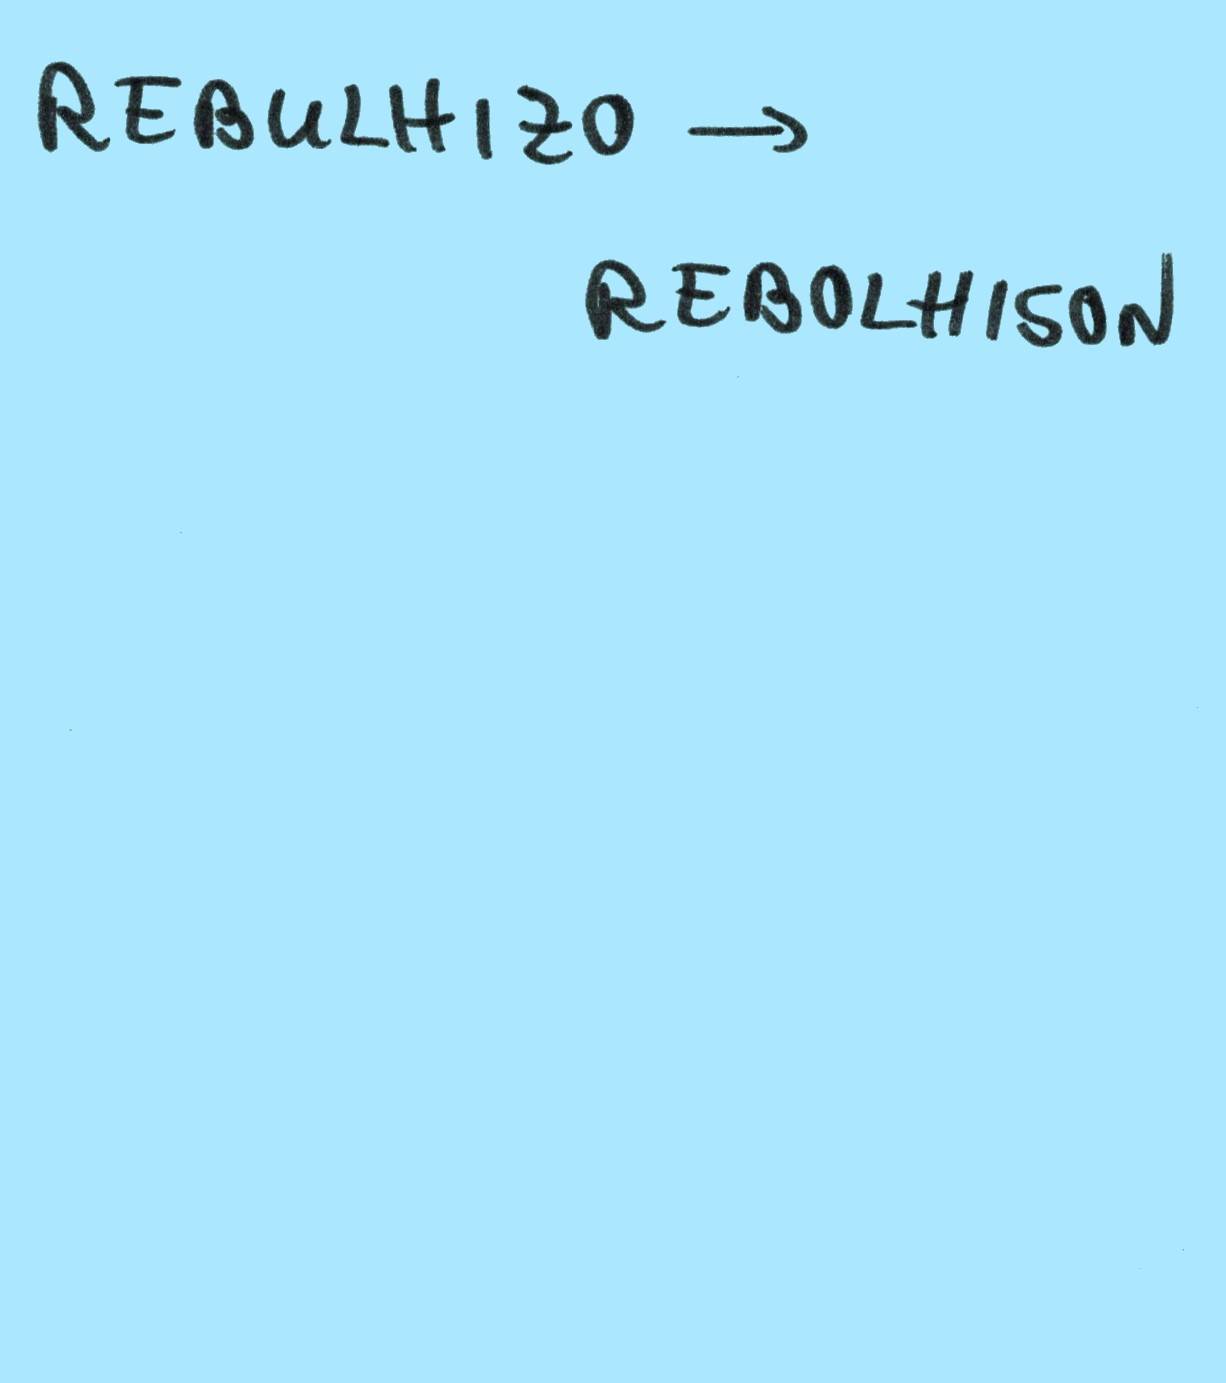 REBULHIZO →
REBOLHISON